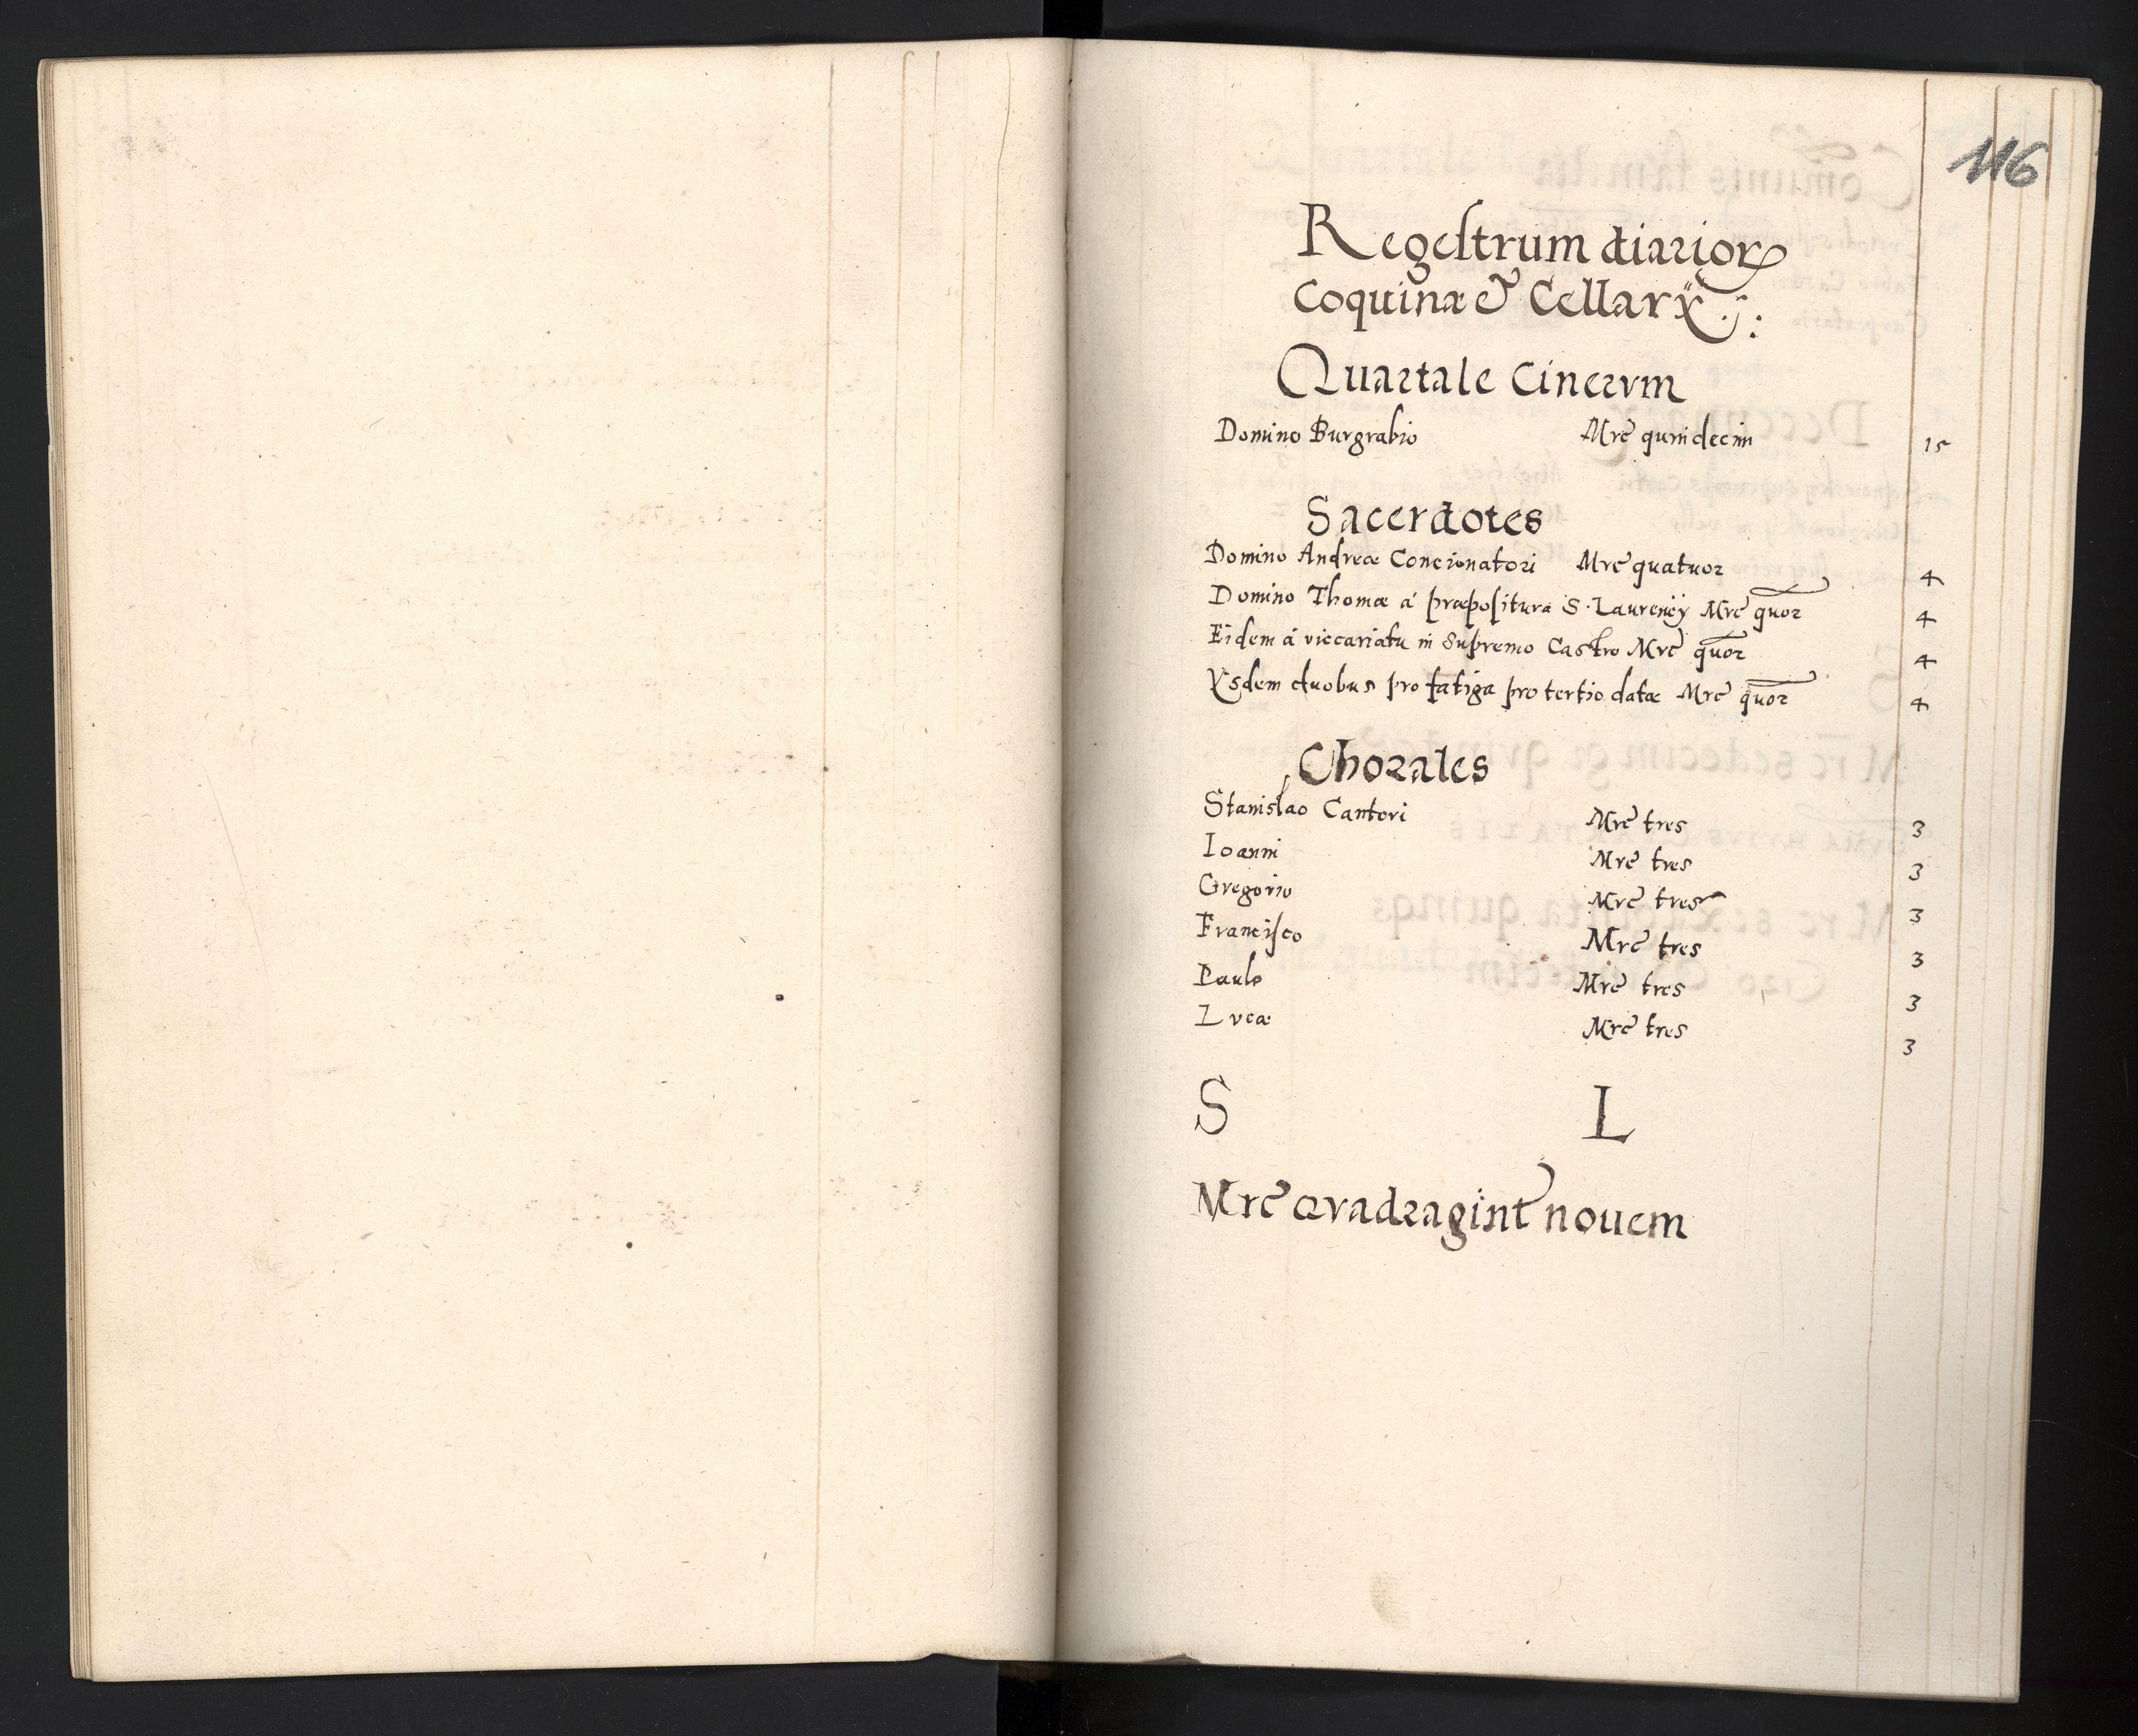 116
Regestrum diariorꝝ
Coquinæ & Cellarÿ
Quartale Cinervm
Domino Burgrabio Mrc̄ quindecim 15
Sacerdotes
Domino Andreæ Concionatori Mrc̄ quatuor 4
Domino Thomæ á præpositura S. Laurencÿ Mrc̄ quor 4
Eidem á viccariatu in Supremo Castro Mrc̄ quor 4
Ÿsdem duobus pro fatiga pro tertio datæ Mrc̄ quor 4
Chorales
Stanislao Cantori Mrc̄ tres 3
Ioanni Mrc̄ tres 3
Gregorio Mrc̄ tres 3
Francisco Mrc̄ tres 3
Paulo Mrc̄ tres 3
Lvcæ Mrc̄ tres 3
S L
Mrc̄ qvadragint nouem